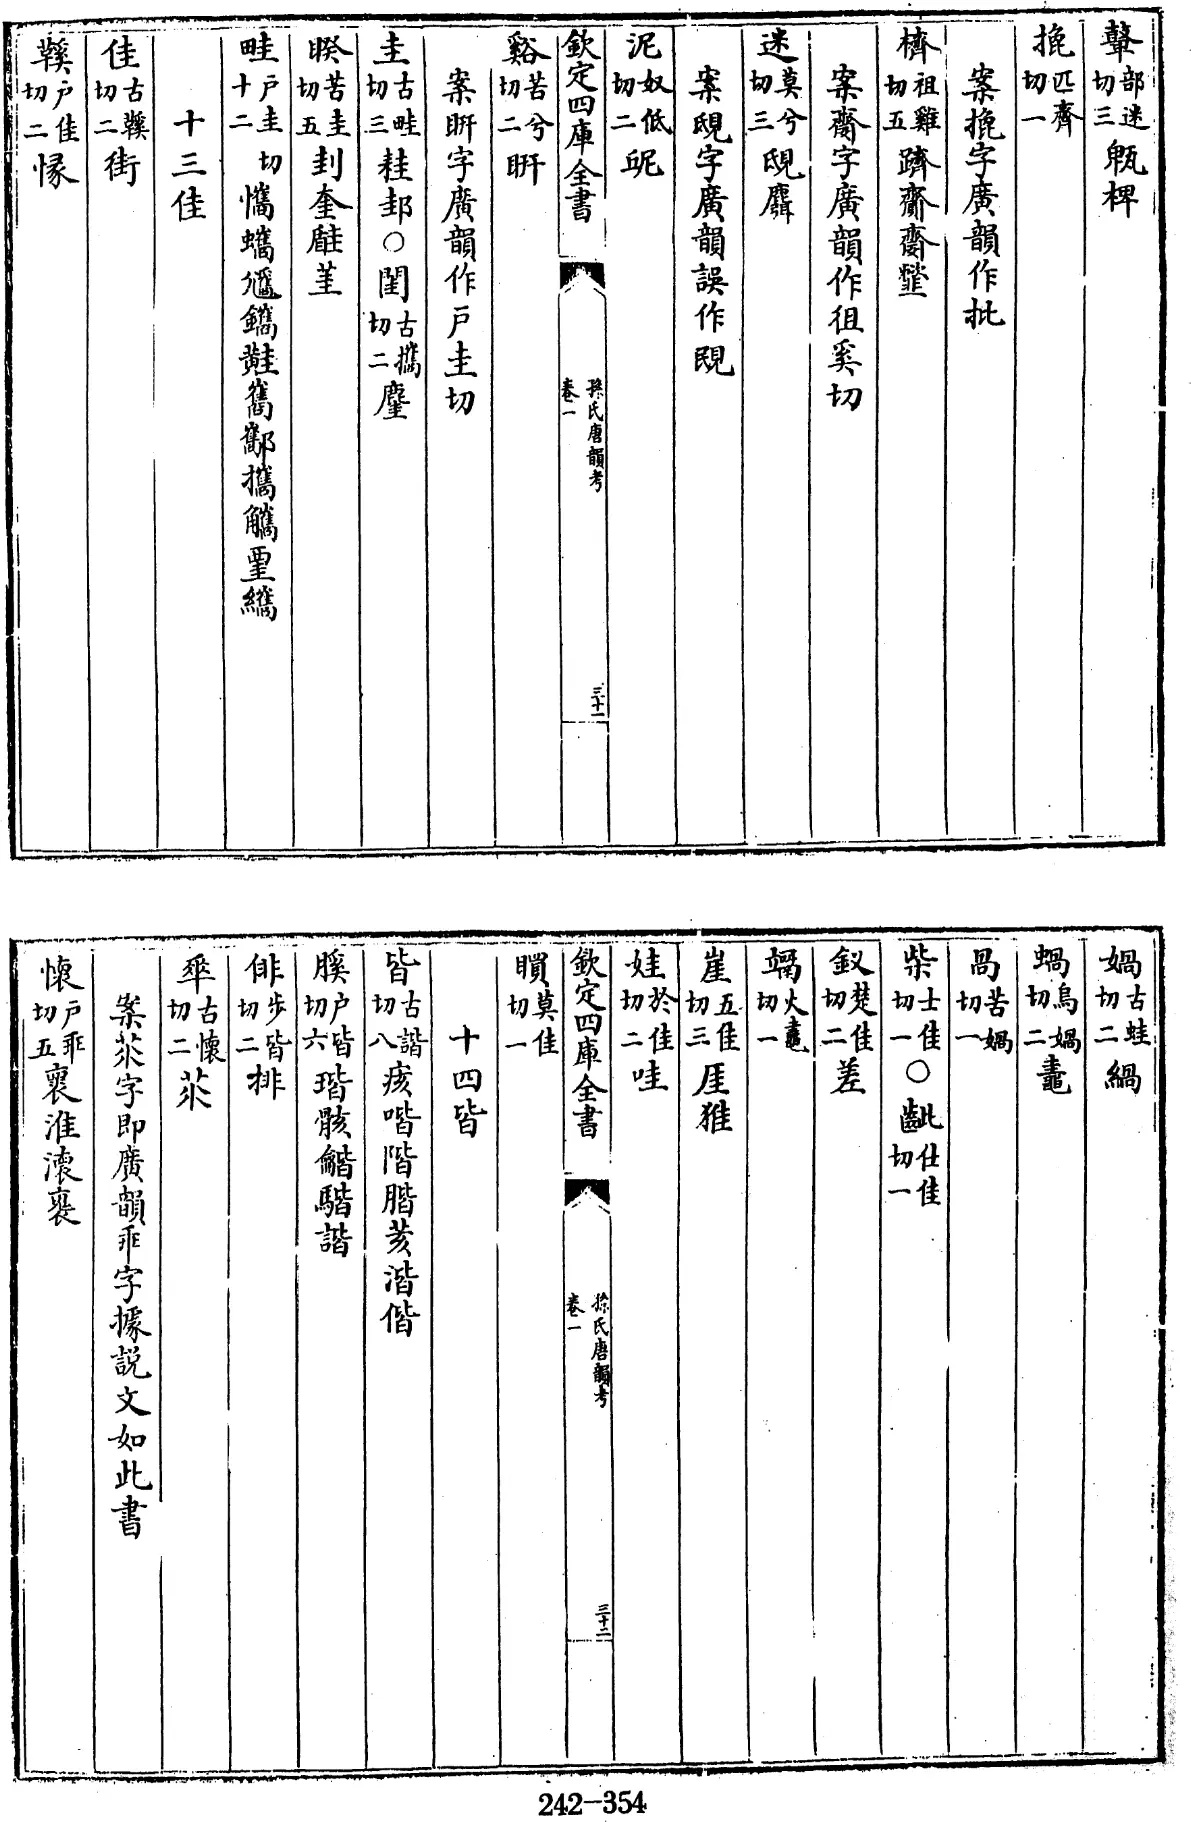 鼙部迷切三甈椑
㨢匹齊切一
案㨢字廣韻作㧗
櫅祖雞切五躋齎齌韲
案齌字廣韻作徂奚切
迷莫兮切三䁇麛
案䁇字廣韻誤作䁇
泥奴低切二屔
欽定四庫全書
孫氏唐韻考
卷一
三十一
谿苦兮切二盻
案盻字廣韻作戶圭切
圭古畦切三珪邽○閨古攜切二䴢
睽苦圭切五刲奎䳏茥
畦戶圭切十二㦎蠵𡰢鑴黊巂酅攜觿㙛纗
十三佳
佳古鞵切二街
鞵戶佳切二㥟
媧古蛙切二緺
蝸烏媧切二鼃
咼苦媧切一
柴士佳切一○齜仕佳切一
釵楚佳切二差
竵火鼃切一
崖五佳切三厓猚
娃於佳切二哇
欽定四庫全書
孫氏唐韻考
卷一
三十二
䁲莫佳切一
十四皆
皆古諧切八痎喈階腊荄湝偕
膎戶皆切六瑎骸龤騥諧
俳步皆切二排
𠦬古懷切二𠂹
案𠂹字即廣韻乖字據說文如此書
懷戶乖切五裹淮瀤褱
242-354